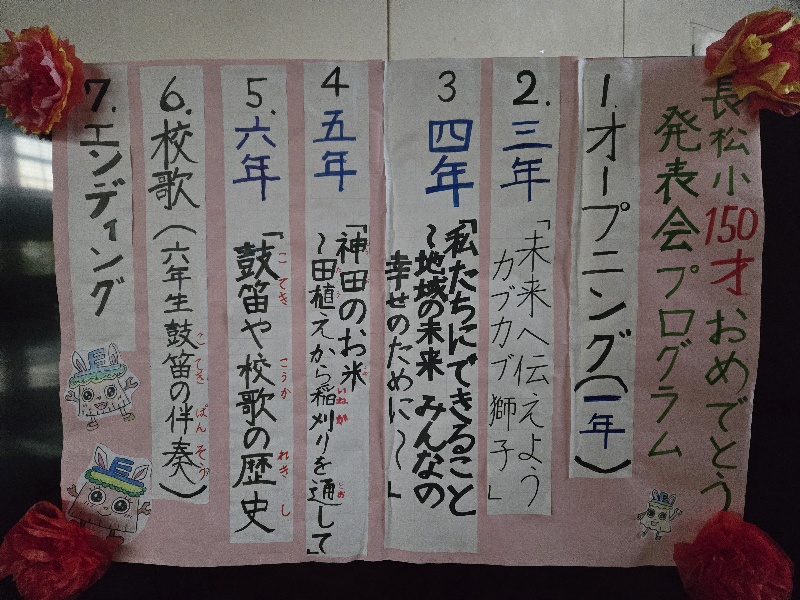 長松小150才おめでとう
発表会プログラム
1.オープニング(一年)
2.三年「未来へ伝えよう
カブカブ獅子」
3 四年「私たちにできること
~地域の未来 みんなの
幸せのために~」
4 五年「神田のお米
~田植えから稲刈りを通して」
5.六年「鼓笛や校歌の歴史
こてき こうか れきし
6.校歌(六年生鼓笛の伴奏)
こてき ばんそう
7.エンディング